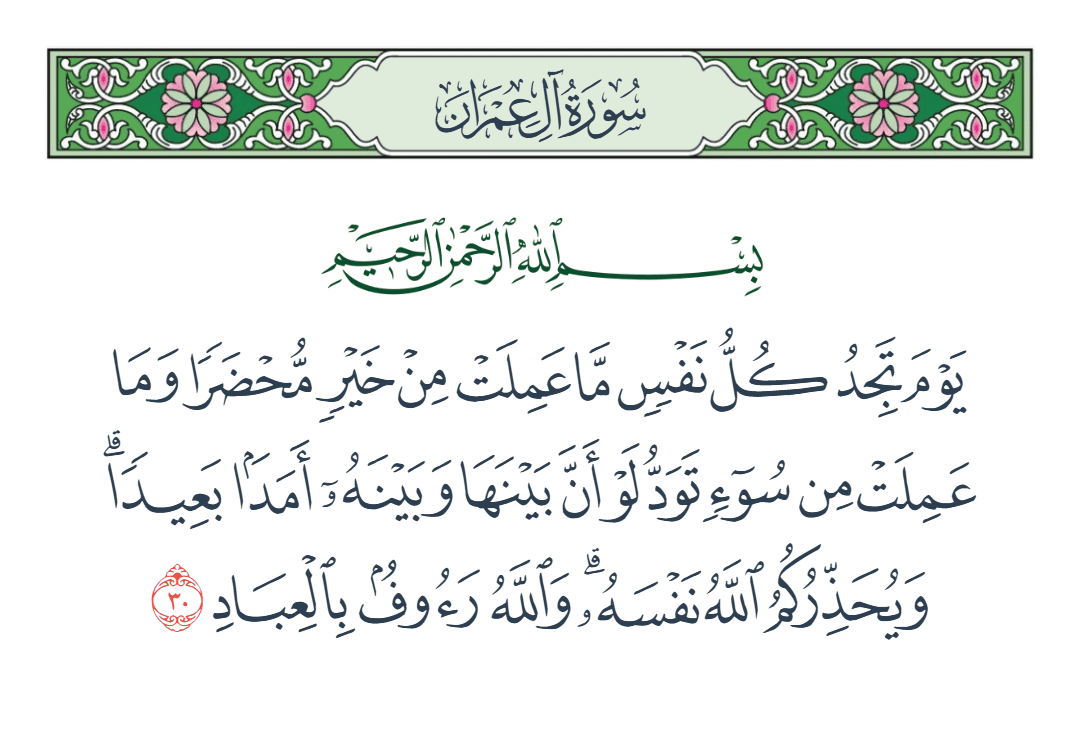 سُورَةُ آلِ عِمْرَانَ
بِسْمِ ٱللَّهِ ٱلرَّحْمَٰنِ ٱلرَّحِيمِ
يَوْمَ تَجِدُ كُلُّ نَفْسٍ مَّا عَمِلَتْ مِنْ خَيْرٍ مُّحْضَرًا وَمَا
عَمِلَتْ مِن سُوٓءٍ تَوَدُّ لَوْ أَنَّ بَيْنَهَا وَبَيْنَهُۥٓ أَمَدَۢا بَعِيدًا ۗ
وَيُحَذِّرُكُمُ ٱللَّهُ نَفْسَهُۥ ۗ وَٱللَّهُ رَءُوفُۢ بِٱلْعِبَادِ ٣٠